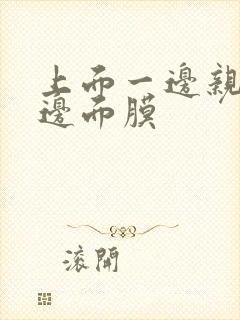 上而一邊親
邊而膜
滾開